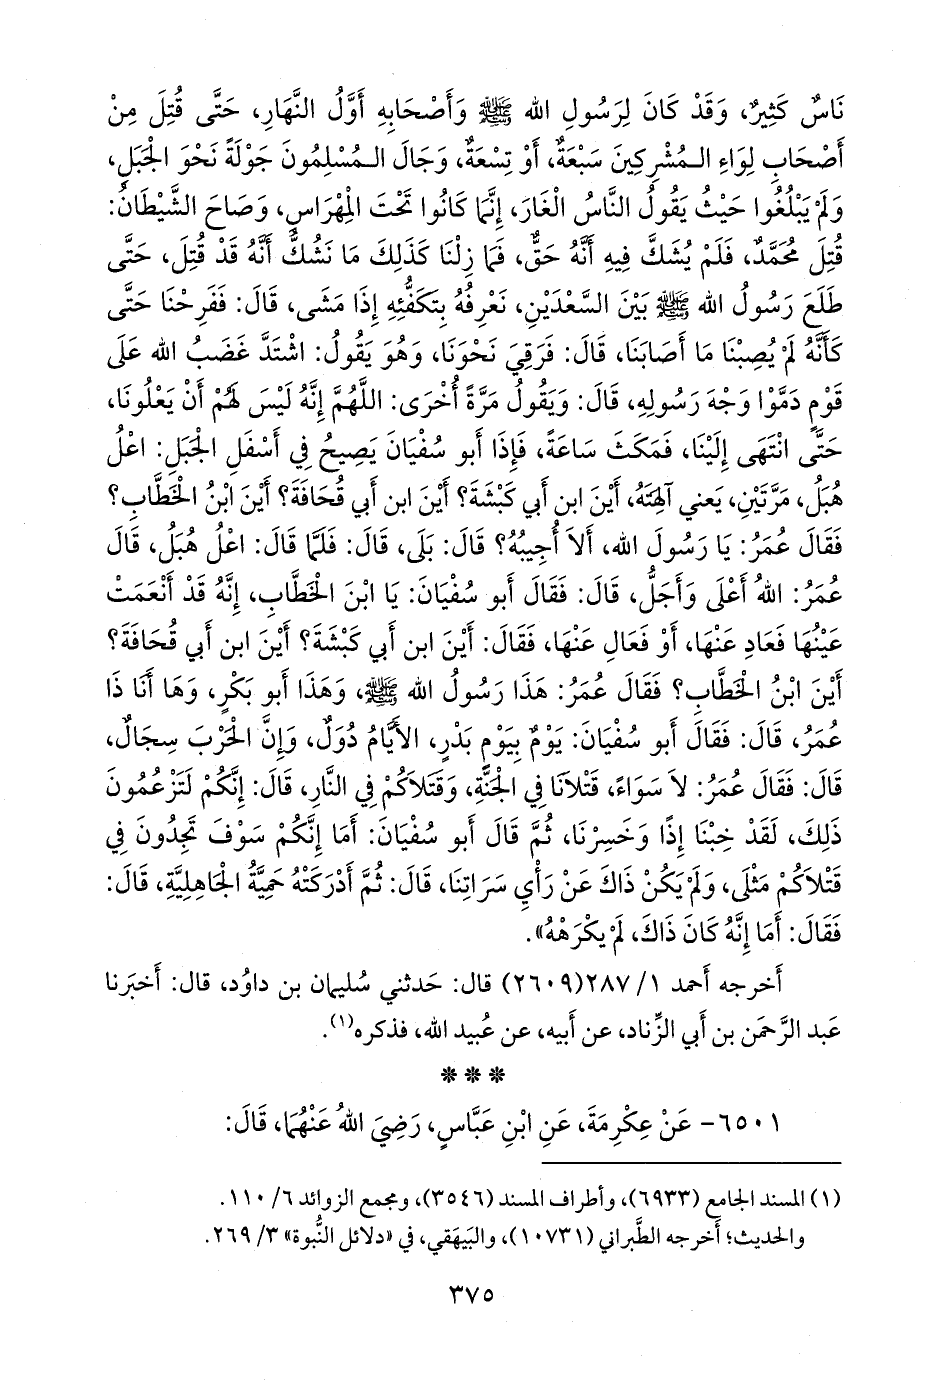 نَاسٌ كَثِيرٌ، وَقَدْ كَانَ لِرَسُولِ الله ﷺ وَأَصْحَابِهِ أَوَّلُ النَّهَارِ، حَتَّى قُتِلَ مِنْ
أَصْحَابِ لِوَاءِ الـمُشْرِكِينَ سَبْعَةٌ، أَوْ تِسْعَةٌ، وَجَالَ الـمُسْلِمُونَ جَوْلَةً نَحْوَ الْجَبَلِ،
وَلَمْ يَبْلُغُوا حَيْثُ يَقُولُ النَّاسُ الْغَارَ، إِنَّمَا كَانُوا تَحْتَ الْمِهْرَاسِ، وَصَاحَ الشَّيْطَانُ:
قُتِلَ مُحَمَّدٌ، فَلَمْ يُشَكَّ فِيهِ أَنَّهُ حَقٌّ، فَمَا زِلْنَا كَذَلِكَ مَا نَشُكُّ أَنَّهُ قَدْ قُتِلَ، حَتَّى
طَلَعَ رَسُولُ الله ﷺ بَيْنَ السَّعْدَيْنِ، نَعْرِفُهُ بِتَكَفُّئِهِ إِذَا مَشَى، قَالَ: فَفَرِحْنَا حَتَّى
كَأَنَّهُ لَمْ يُصِبْنَا مَا أَصَابَنَا، قَالَ: فَرَقِيَ نَحْوَنَا، وَهُوَ يَقُولُ: اشْتَدَّ غَضَبُ الله عَلَى
قَوْمٍ دَمَّوْا وَجْهَ رَسُولِهِ، قَالَ: وَيَقُولُ مَرَّةً أُخْرَى: اللَّهُمَّ إِنَّهُ لَيْسَ لَهُمْ أَنْ يَعْلُونَا،
حَتَّى انْتَهَى إِلَيْنَا، فَمَكَثَ سَاعَةً، فَإِذَا أَبو سُفْيَانَ يَصِيحُ فِي أَسْفَلِ الْجَبَلِ: اعْلُ
هُبَلُ، مَرَّتَيْنِ، يَعني آلِهَتَهُ، أَيْنَ ابن أَبي كَبْشَةَ؟ أَيْنَ ابن أَبي قُحَافَةَ؟ أَيْنَ ابْنُ الْخَطَّابِ؟
فَقَالَ عُمَرُ: يَا رَسُولَ الله، أَلاَ أُجِيبُهُ؟ قَالَ: بَلَى، قَالَ: فَلَمَّا قَالَ: اعْلُ هُبَلُ، قَالَ
عُمَرُ: اللهُ أَعْلَى وَأَجَلُّ، قَالَ: فَقَالَ أَبو سُفْيَانَ: يَا ابْنَ الْخَطَّابِ، إِنَّهُ قَدْ أَنْعَمَتْ
عَيْنُهَا فَعَادِ عَنْهَا، أَوْ فَعَالِ عَنْهَا، فَقَالَ: أَيْنَ ابن أَبي كَبْشَةَ؟ أَيْنَ ابن أَبي قُحَافَةَ؟
أَيْنَ ابْنُ الْخَطَّابِ؟ فَقَالَ عُمَرُ: هَذَا رَسُولُ الله ﷺ، وَهَذَا أَبو بَكْرٍ، وَهَا أَنَا ذَا
عُمَرُ، قَالَ: فَقَالَ أَبو سُفْيَانَ: يَوْمٌ بِيَوْمِ بَدْرٍ، الأَيَّامُ دُوَلٌ، وَإِنَّ الْحَرْبَ سِجَالٌ،
قَالَ: فَقَالَ عُمَرُ: لاَ سَوَاءً، قَتْلاَنَا فِي الْجَنَّةِ، وَقَتْلاَكُمْ فِي النَّارِ، قَالَ: إِنَّكُمْ لَتَزْعُمُونَ
ذَلِكَ، لَقَدْ خِبْنَا إِذًا وَخَسِرْنَا، ثُمَّ قَالَ أَبو سُفْيَانَ: أَمَا إِنَّكُمْ سَوْفَ تَجِدُونَ فِي
قَتْلاَكُمْ مَثْلَى، وَلَمْ يَكُنْ ذَاكَ عَنْ رَأْيِ سَرَاتِنَا، قَالَ: ثُمَّ أَدْرَكَتْهُ حَمِيَّةُ الْجَاهِلِيَّةِ، قَالَ:
فَقَالَ: أَمَا إِنَّهُ كَانَ ذَاكَ، لَمْ يَكْرَهْهُ».
أَخرجه أَحمد ١/ ٢٨٧(٢٦٠٩) قال: حَدثني سُليمان بن داوُد، قال: أَخبَرنا
عَبد الرَّحمَن بن أَبي الزِّناد، عن أَبيه، عن عُبيد الله، فذكره(١).
***
٦٥٠١- عَنْ عِكْرِمَةَ، عَنِ ابْنِ عَبَّاسٍ، رَضِيَ اللهُ عَنْهُمَا، قَالَ:
(١) المسند الجامع (٦٩٣٣)، وأطراف المسند (٣٥٤٦)، ومجمع الزوائد ٦/ ١١٠.
والحديث؛ أخرجه الطَّبراني (١٠٧٣١)، والبَيهَقي، في «دلائل النُّبوة» ٣/ ٢٦٩.
٣٧٥